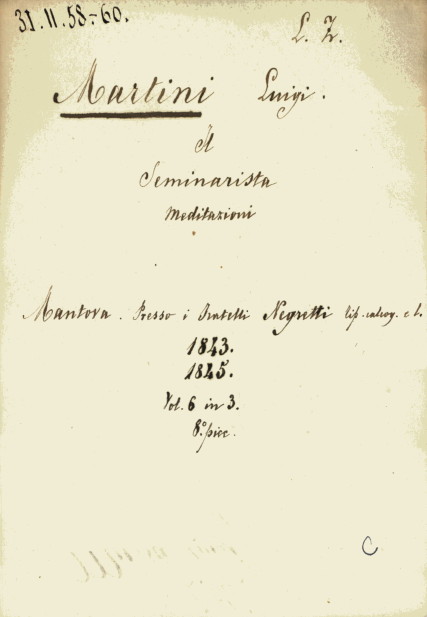 31.11.58.-60.
L. Z.
Martini Luigi.
Il
Seminarista
Meditazioni
Mantova. Presso i Fratelli Negretti tip. calcog. e l.
1843.
1845.
Vol. 6 in 3.
8.° picc.
C